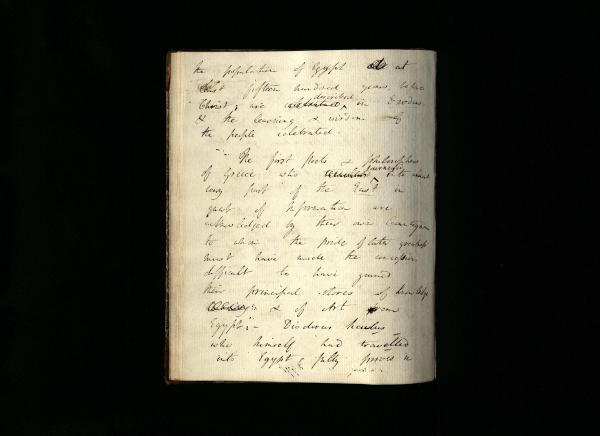 the population of Egypt at
least fifteen hundred years before
Christ; are described in Exodus.
& the learning & wisdom of
the people celebrated.
The first Poets & philosophers
of Greece who journeyed into almost
every part of the East in
quest of Information are
acknowledged by their own Countrymen
to whom the pride of later greatness
must have made the concession
difficult to have gained
their principal stores of knowledge
& of Art from
Egypt; - Diodorus Siculus
who himself had travelled
into Egypt, fully proves in